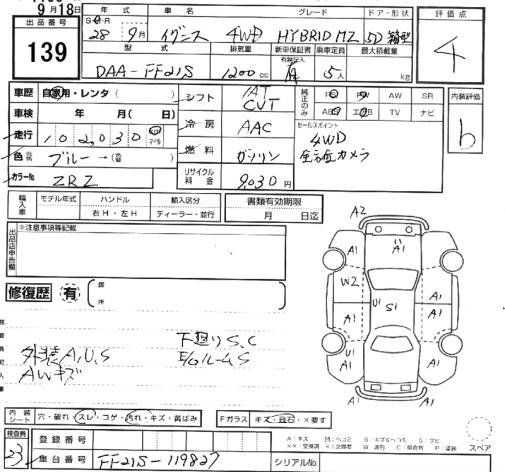 9月18日
出品番号
139
年式 車名 グレード ドア・形状
S・H・R 28年 9月 イグニス 4WD HYBRID MZ 5D 箱型
型式 排気量 新車保証書 乗車定員 最大積載量
DAA-FF21S 1200cc 有 5人 kg
評価点
4
車歴 自家用・レンタ ( )
車検 年 月( 日)
走行 102,030 km マイル
色 ブルー →( )
カラーNo. ZRZ
シフト IAT CVT
冷房 AAC
燃料 ガソリン
リサイクル料金 9,030円
純正のみ
PS PW AW SR
ABS エアB TV ナビ
セールスポイント
4WD
全方位カメラ
内装評価
b
輸入車
モデル年式 ハンドル 輸入区分
右H・左H ディーラー・並行
書類有効期限
月 日迄
出品店申告欄
※注意事項等記載
修復歴 有
箇所
外装A,U,S
AWキズ
下廻りS,C
E/GルームS
A2
A1 A1
W2
A1 U1 S1 A1
A1 A1
U1
A1 A1
A1
内装シート 穴・破れ スレ・コゲ・汚れ・キズ・黄ばみ
Fガラス キズ・飛石・×要す
検査員
23
登録番号
車台番号 FF21S-119827
シリアルNo.
スペア